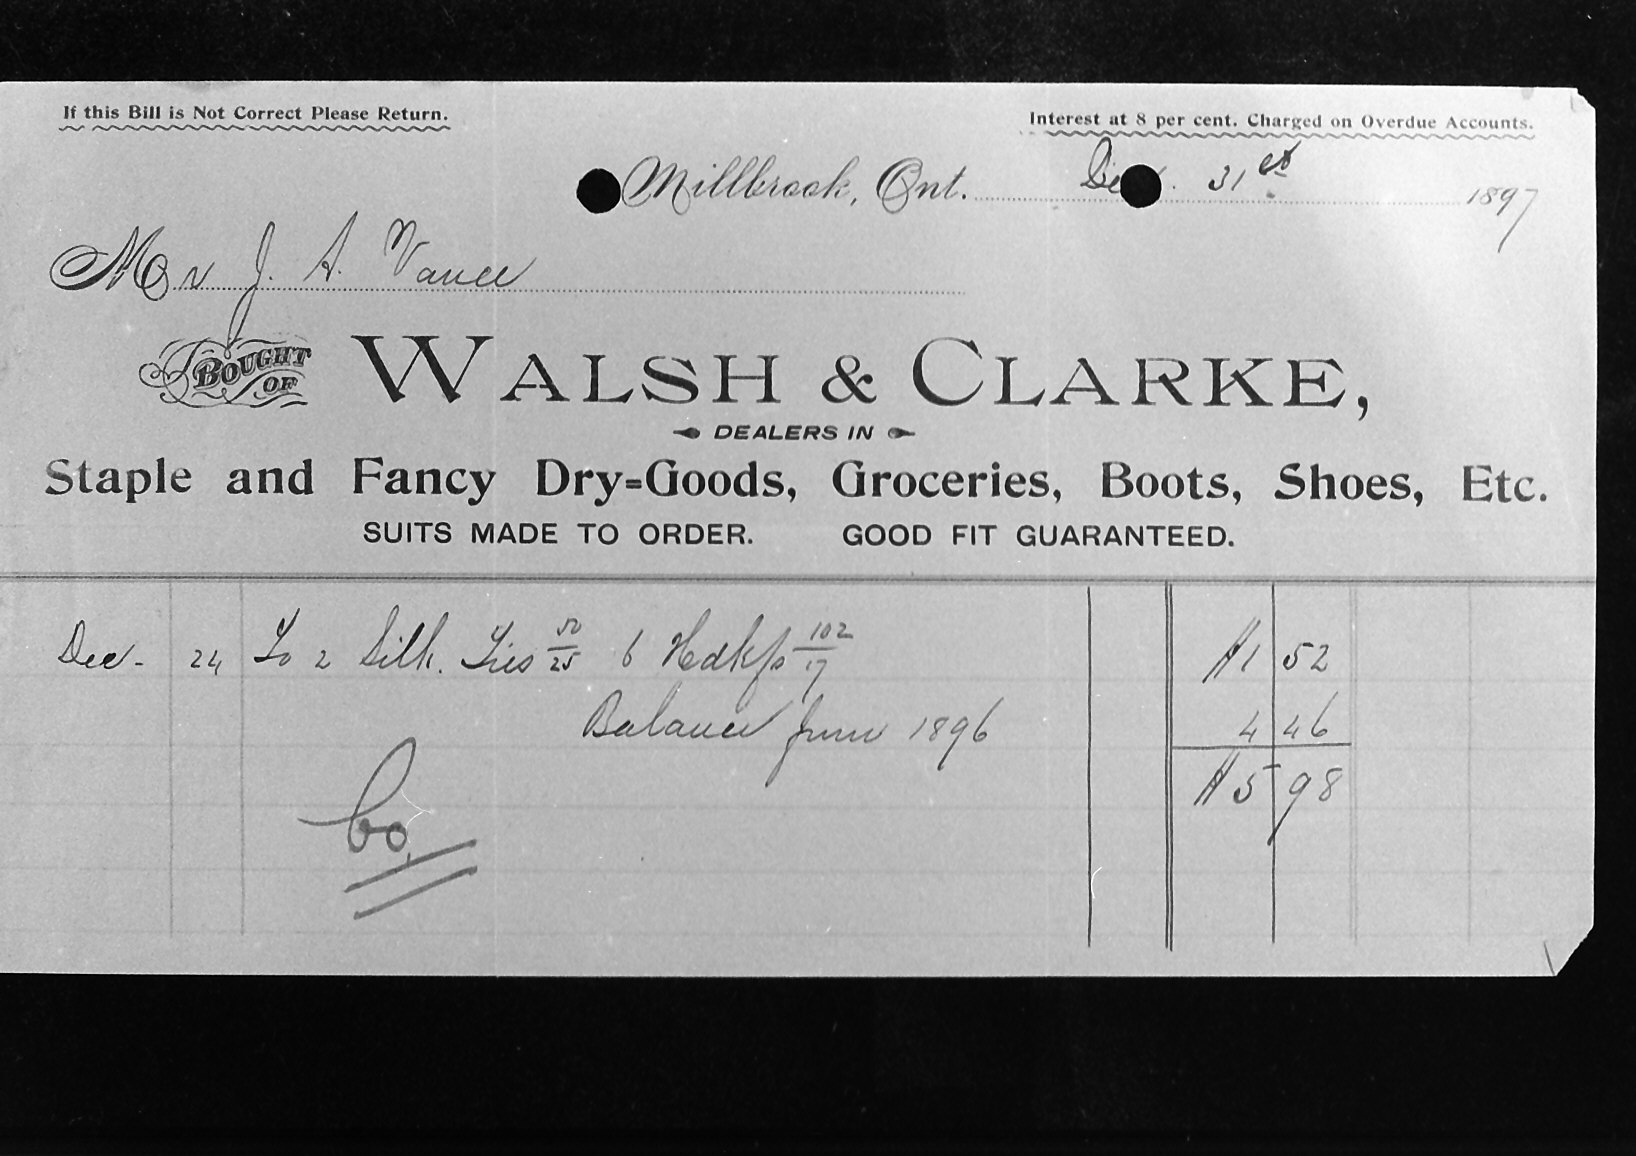 If this Bill is Not Correct Please Return.
Interest at 8 per cent. Charged on Overdue Accounts.
Millbrook, Ont. Dec. 31st 1897
Mr J. A. Vance
BOUGHT OF WALSH & CLARKE,
DEALERS IN
Staple and Fancy Dry=Goods, Groceries, Boots, Shoes, Etc.
SUITS MADE TO ORDER. GOOD FIT GUARANTEED.
Dec - 24 To 2 Silk Ties 50/25 6 Hdkfs 102/17 $1 52
Balance June 1896 4 46
$5 98